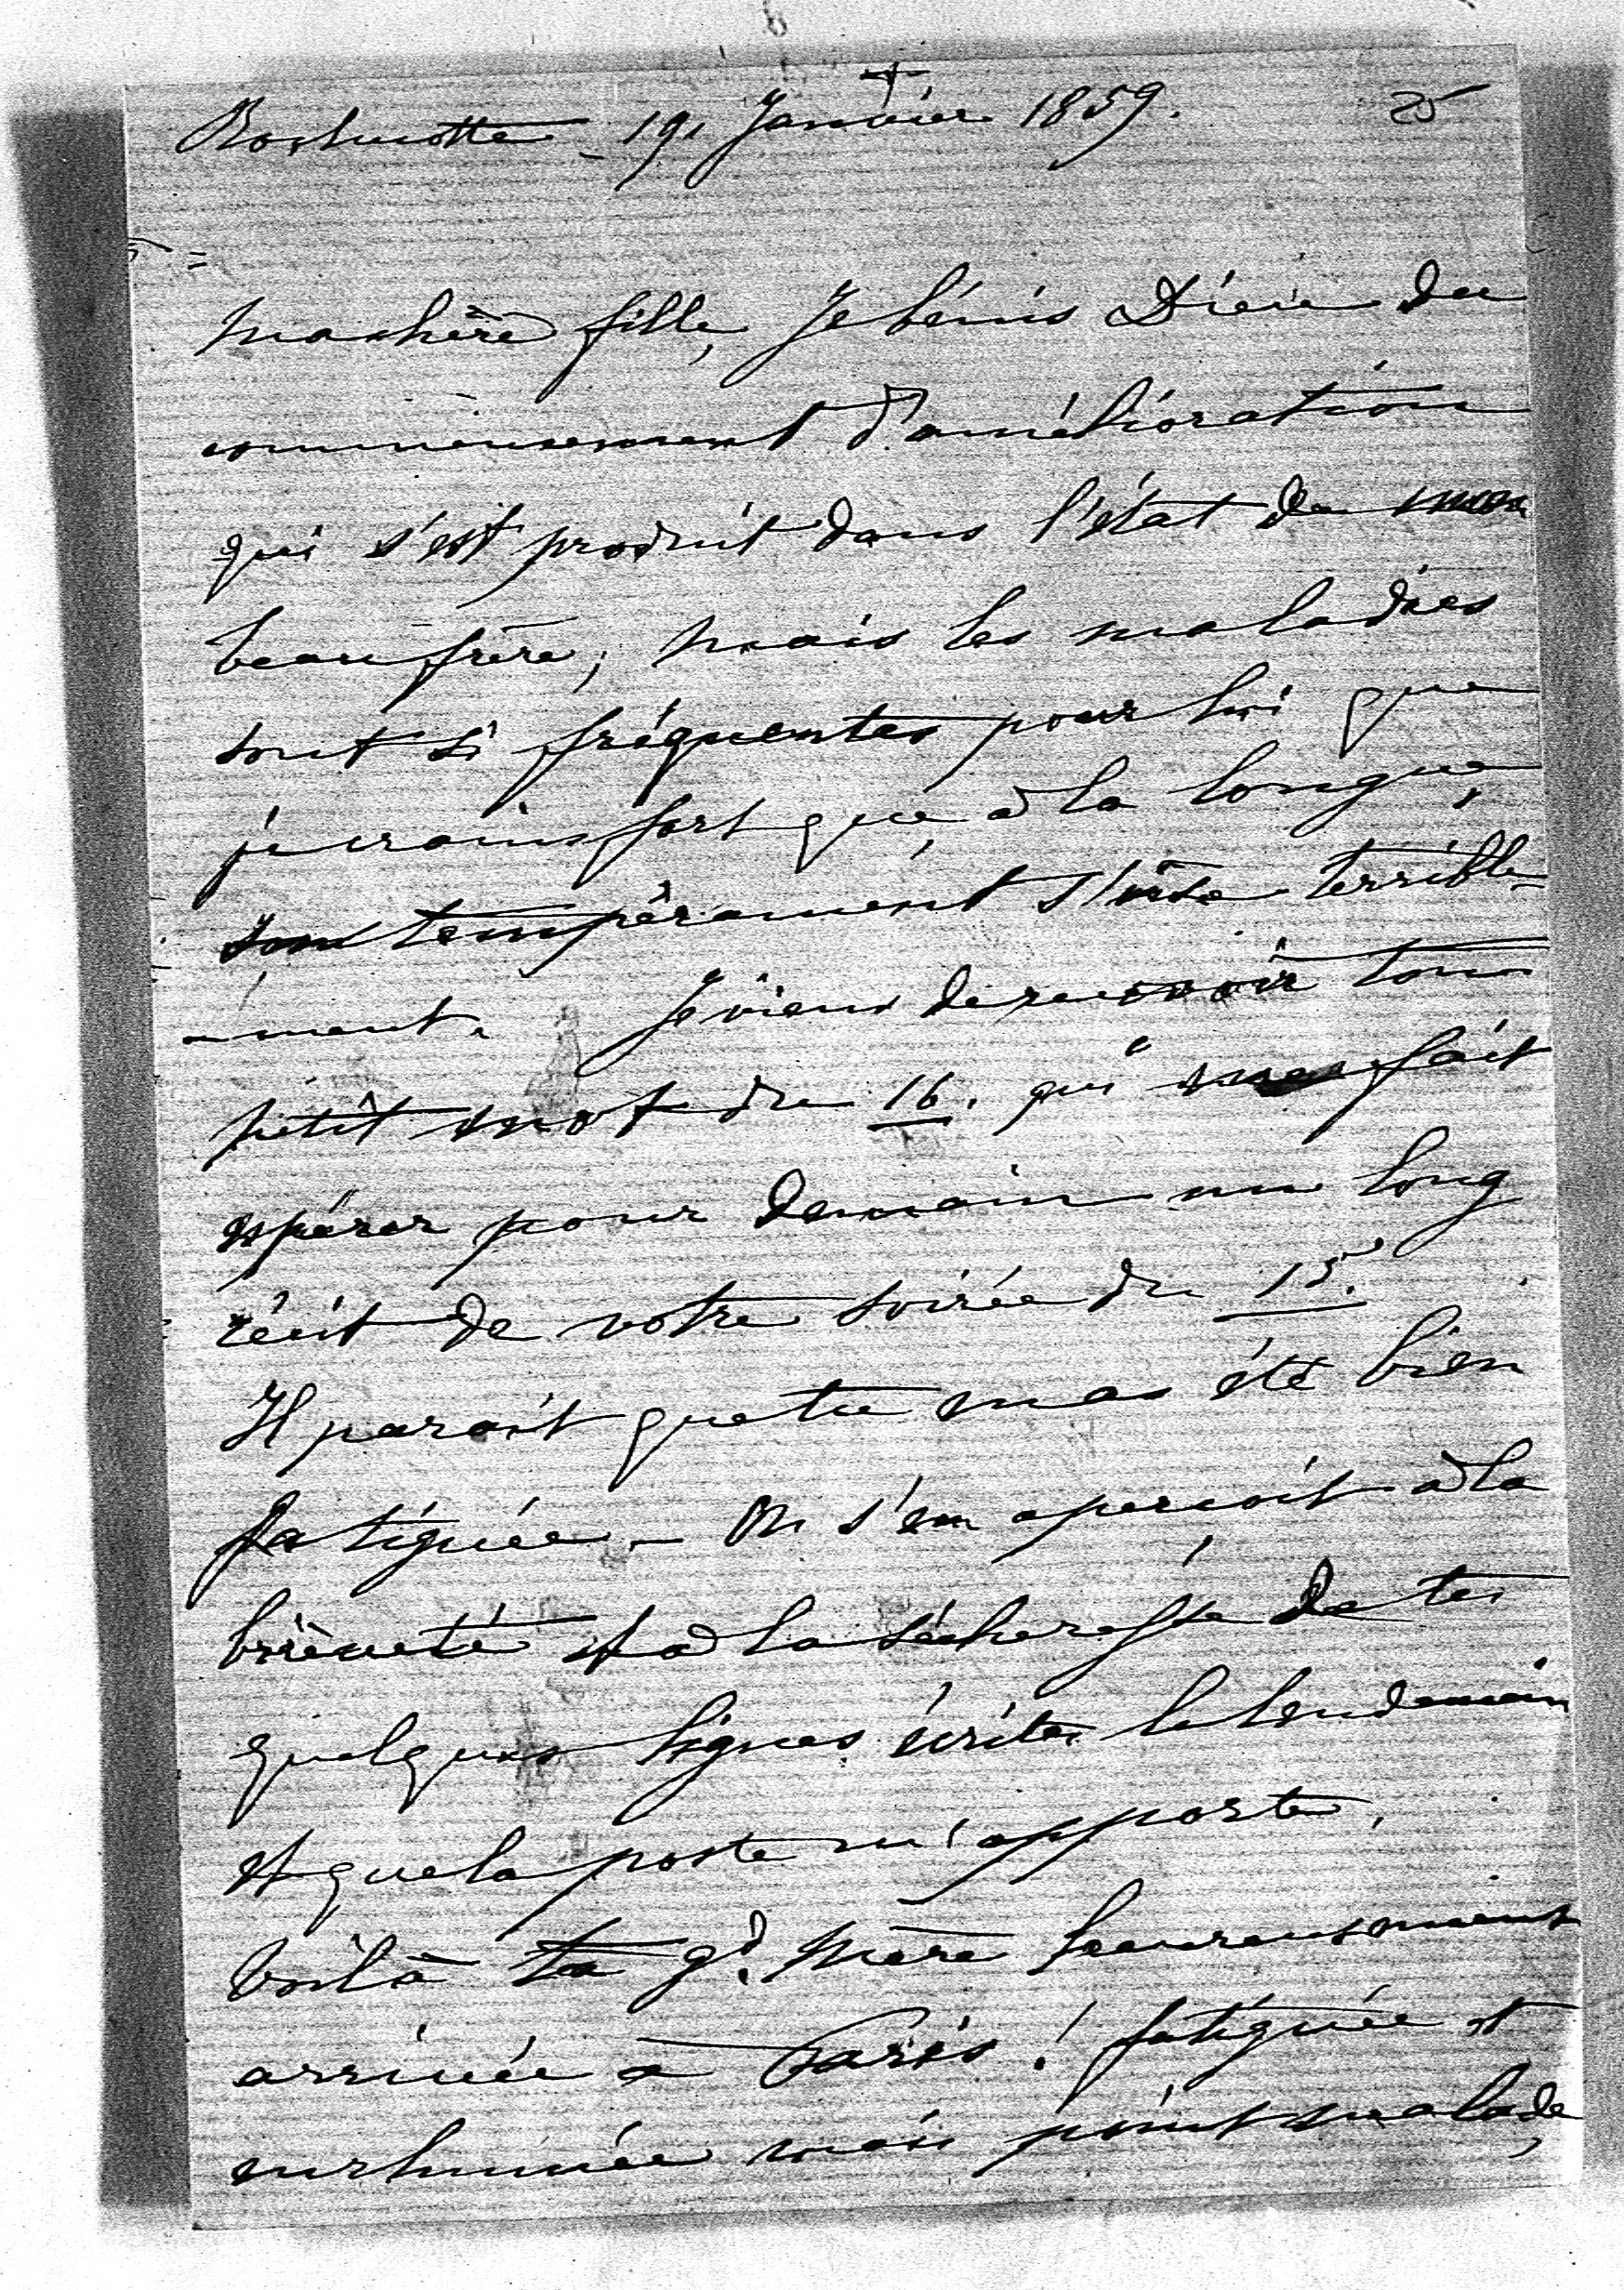 +
Rochecotte – 19. Janvier 1859.
25
Ma chère fille, Je bénis Dieu du
commencement d'amélioration
qui s'est produit dans l'état de mon
beau frère; mais les maladies
sont si fréquentes pour lui que
je crains fort que, à la longue,
son tempérament s'use terrible-
-ment. Je viens de recevoir ton
petit mot du 16. qui me fait
espérer pour demain un long
récit de votre soirée du 15.
Il parait que tu en as été bien
fatiguée – On s'en aperçoit à la
brièveté et à la sécheresse de tes
quelques lignes écrites le lendemain
et que la poste m'apporte.
Voilà ta gd. Mère heureusement
arrivée à Paris! fatiguée et
enrhumée mais point malade,